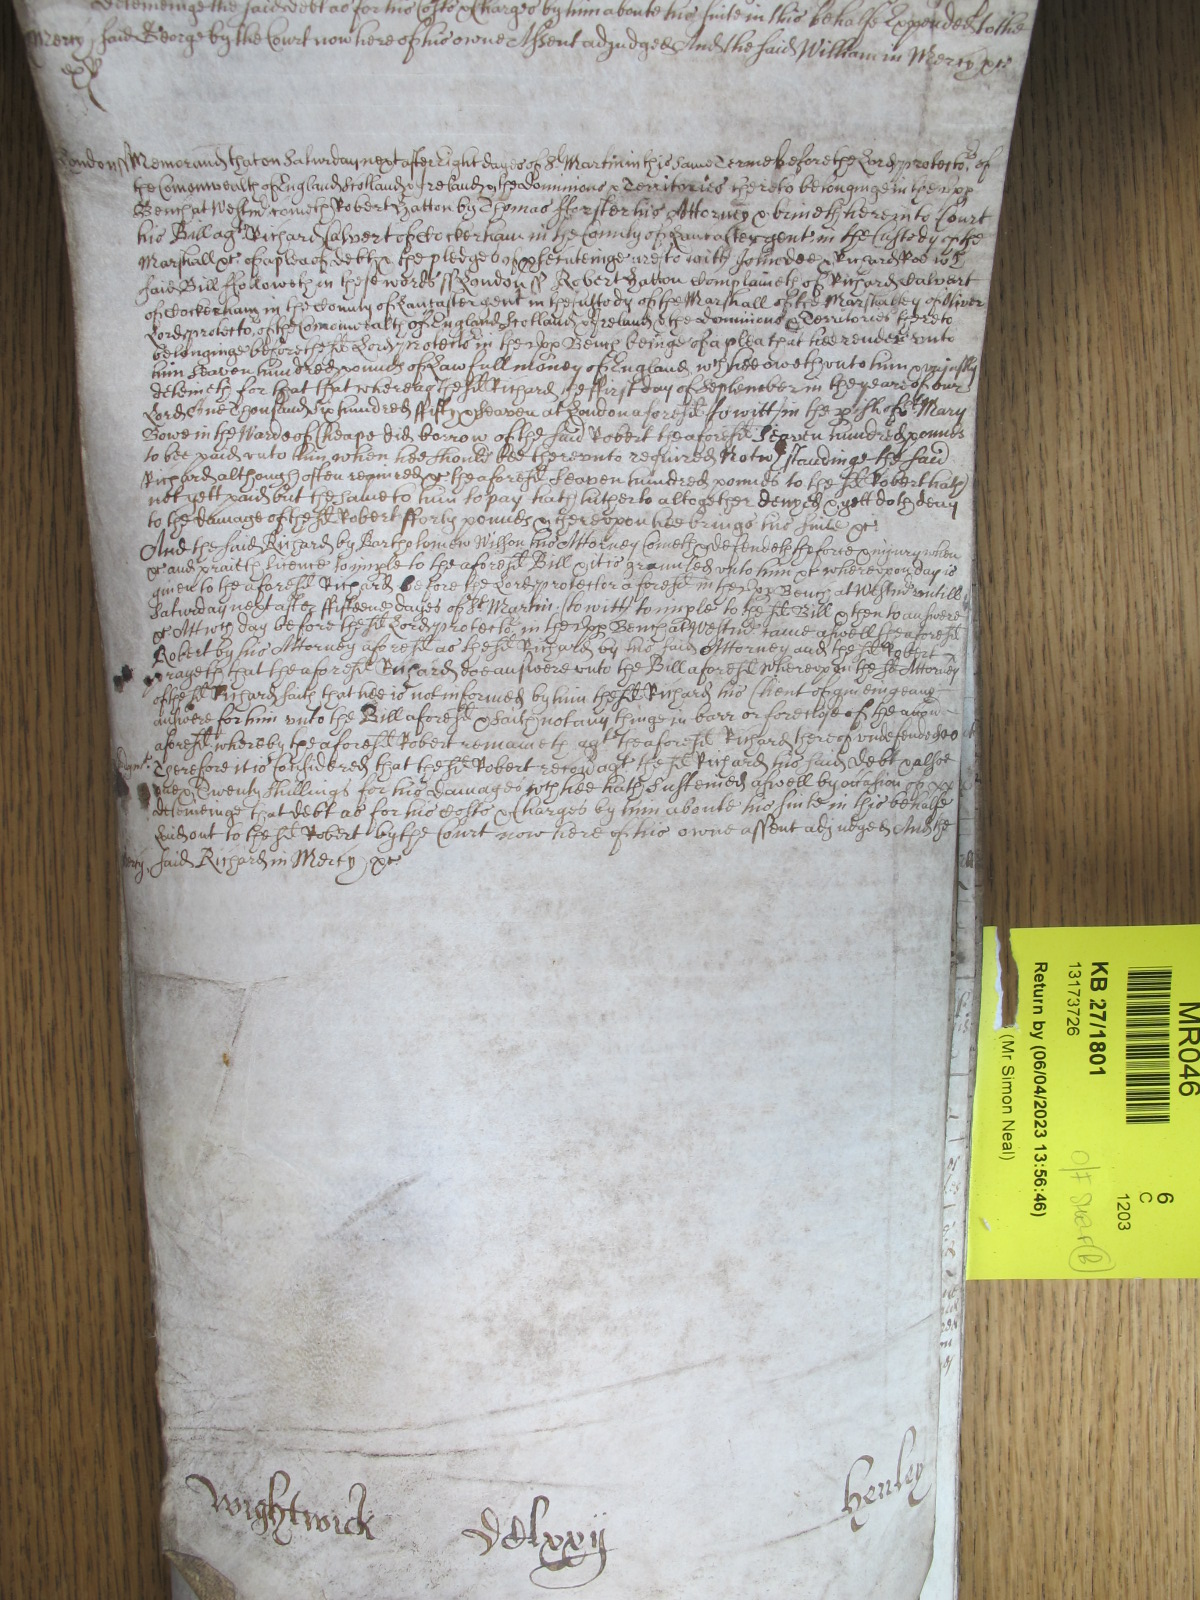 deteineinge the said debt as for his Costs & Charges by him aboute his suite in this behalfe Expended to the
Mercy said George by the Court now here of his owne Assent adjudged And the said William in Mercy &c
London ss Memorand that on Saturday next after Eight dayes of St Martin in this same Terme before the Lord protector of
the Comonwealth of England Scotland & Ireland & the dominions & Territories thereto belonginge in the upp
Bench at Westm cometh Robert Hatton by Thomas fforster his Attorney & bringeth here into Court
his Bill agt Richard Calvert of Cockerham in the County of Lancaster gent in the Custody of the
Marshall &c of a plea of debt & the pledges of prosecuteinge are to witt John doe & Richard Roe wch
said Bill ffolloweth in these words ss London ss Robert Hatton Complaineth of Richard Calvert
of Cockerham in the County of Lancaster gent in the Custody of the Marshall of the Marshalsey of Oliver
Lord protector of the Comonwealth of England Scotland & Ireland & the dominions & Territories thereto
belonginge before the sd Lord protector in the upp Bench beinge of a plea that hee render unto
him Seaven hundred pounds of Lawfull money of England wch hee oweth unto him & unjustly
deteineth for that that whereas the sd Richard the ffirst day of September in the yeare of our
Lord One Thousand six hundred ffifty & Seaven at London aforesd to witt in the pish of St Mary
Bowe in the Warde of Cheape did borrow of the said Robert the aforesd Seaven hundred pounds
to bee paid unto him when hee should bee thereunto required Notwthstandinge the said
Richard although often required &c the aforesd Seaven hundred pounds to the sd Robert hath
not yett paid but the same to him to pay hath hitherto altogether denyed & yett doth deny
to the damage of the sd Robert fforty pounds & thereupon hee brings his suite &c
And the said Richard by Bartholomew Willson his Attorney Cometh & defendeth the force & injury when
&c and prayeth licence to imple to the aforesd Bill & it is graunted unto him &c whereupon day is
given to the aforesd Richard before the Lord protector aforesd in the upp Bench at Westm untill
Saturday next after ffifteene dayes of St Martin to witt to imple to the sd Bill & then to answere
&c Att wch day before the sd Lord protector in the upp Bench att Westm came aswell the aforesd
Robert by his Attorney aforesd as the sd Richard by his said Attorney and the sd Robert
prayeth that the aforesd Richard doe answere unto the Bill aforesd whereupon the sd Attorney
of the sd Richard saith that hee is not informed by him the sd Richard his Client of giveinge any
answere for him unto the Bill aforesd & saith not any thinge in barr or foreclose of the accon
aforesd whereby the aforesd Robert remaineth agt the aforesd Richard thereof undefended
Judgmt Therefore it is Considered that the sd Robert recov agt the sd Richard his said debt & alsoe
Twenty shillings for his damages wch hee hath susteined aswell by occasion of
deteineinge that debt as for his Costs & Charges by him aboute his suite in this behalfe
Laid out to the sd Robert by the Court now here of his owne assent adjudged And the
Mercy said Richard in Mercy &c
Wightwick
DClxxij
Henley
MR046
KB 27/1801
13173726
Return by (06/04/2023 13:56:46)
(Mr Simon Neal)
6
C
1203